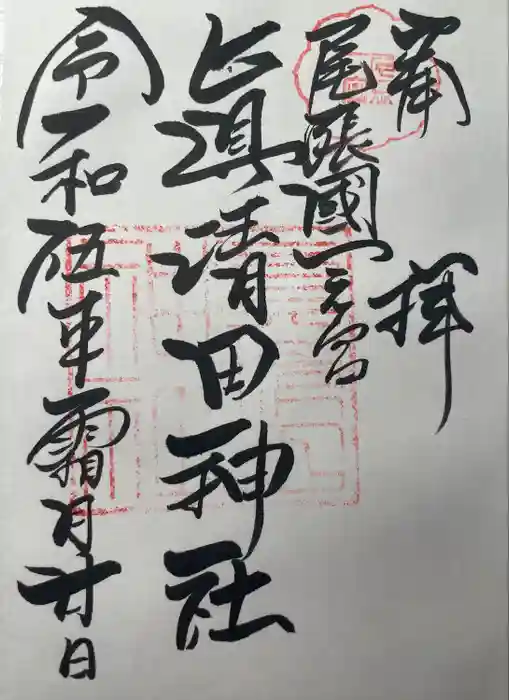 奉拝
尾張國一之宮
眞清田神社
令和伍年霜月廿日